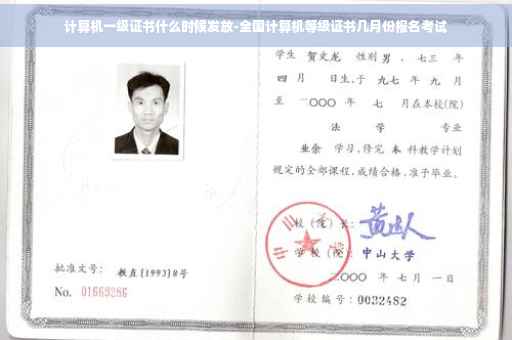 计算机一级证书什么时候发放-全国计算机等级证书几月份报名考试
学生 贺文龙 性别 男，七三 年
四 月 日生，于 九七 年 九 月
至 二〇〇〇 年 七 月在本校(院)
法 学 专业
业余 学习，修完 本 科教学计划
规定的全部课程，成绩合格，准予毕业。
校（院）长：
学 校（院）：中山大学
二〇〇〇 年 七 月 一 日
学校编号：0032482
批准文号：教直[1993]8号
No. 01669286